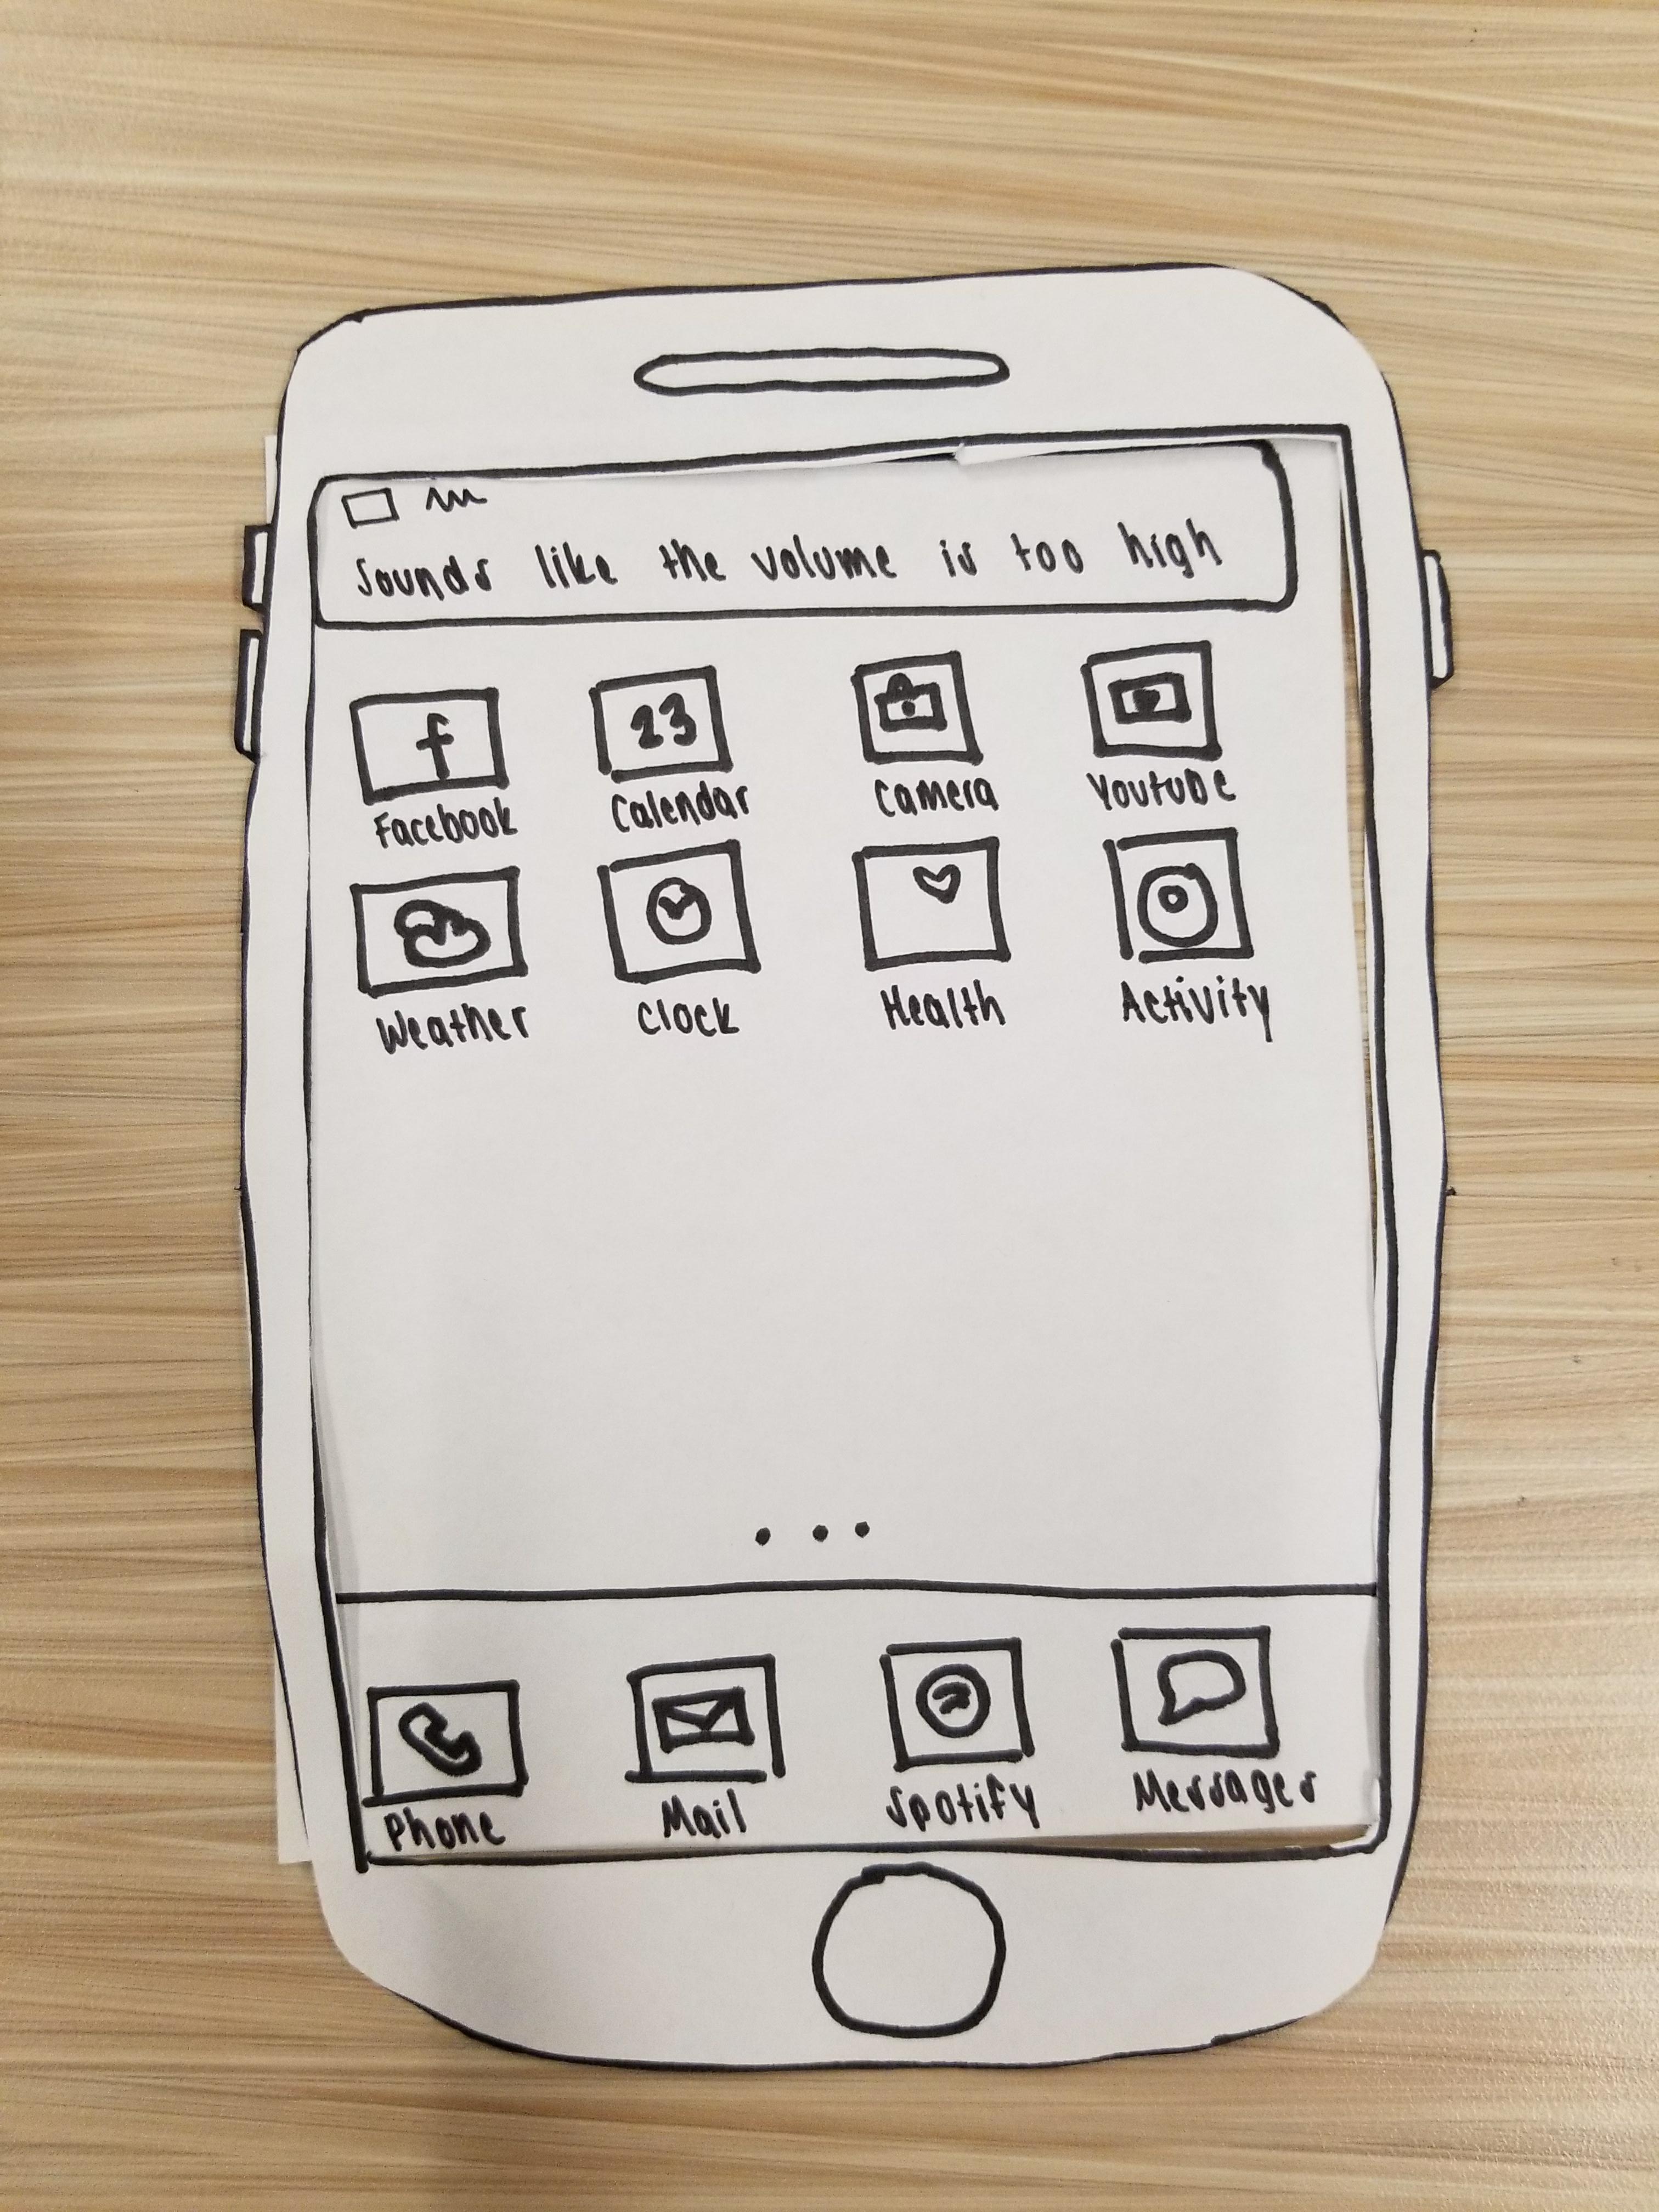 Sounds like the volume is too high
f 23
Facebook Calendar Camera Youtube
Weather Clock Health Activity
Phone Mail Spotify Messages